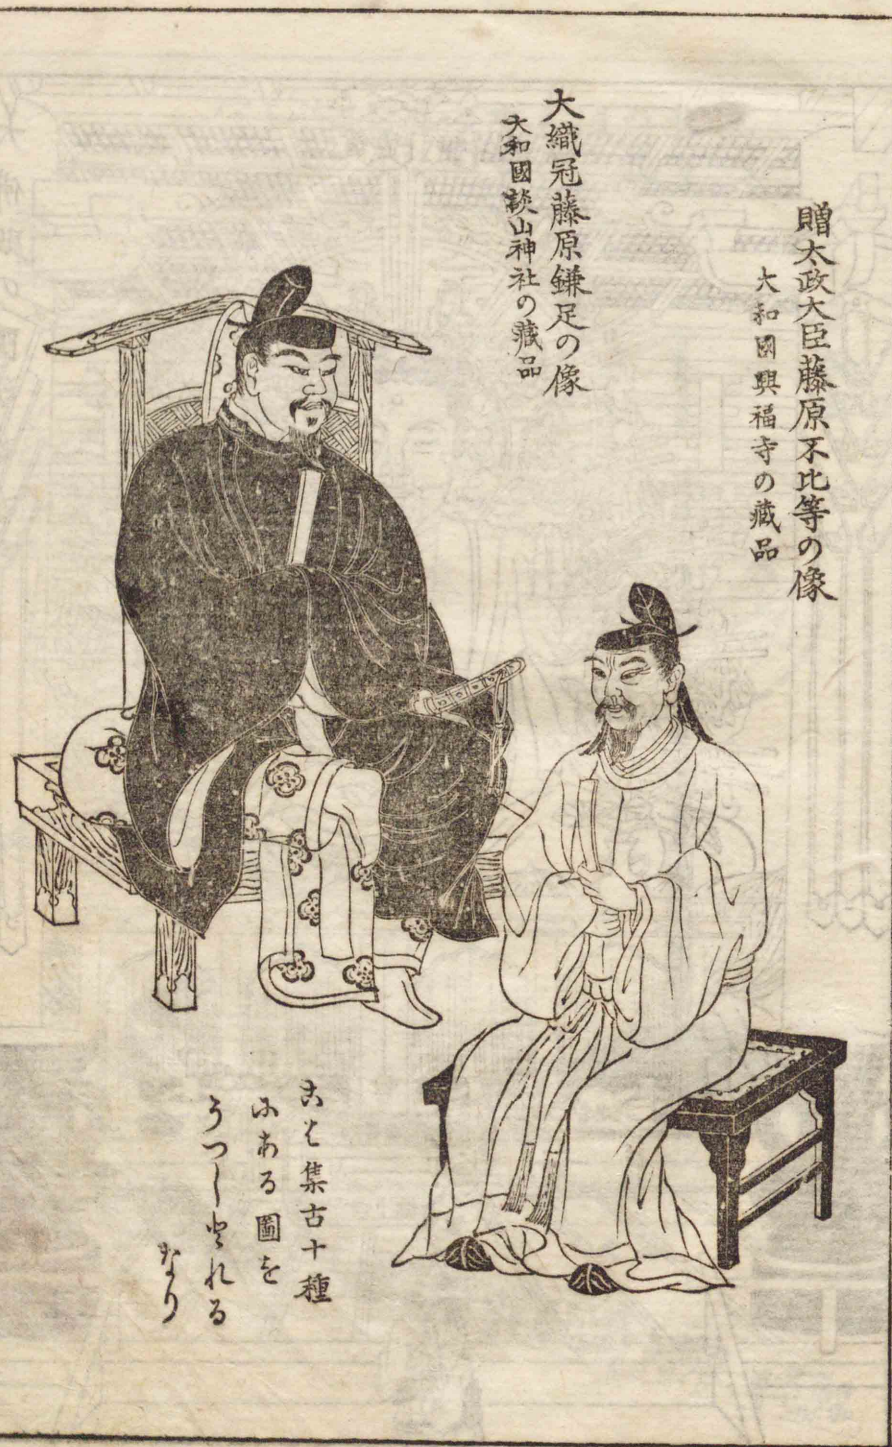 贈太政大臣藤原不比等の像
大和國興福寺の藏品
大織冠藤原鎌足の像
大和國談山神社の藏品
こは集古十種
にある圖を
うつしとれる
なり